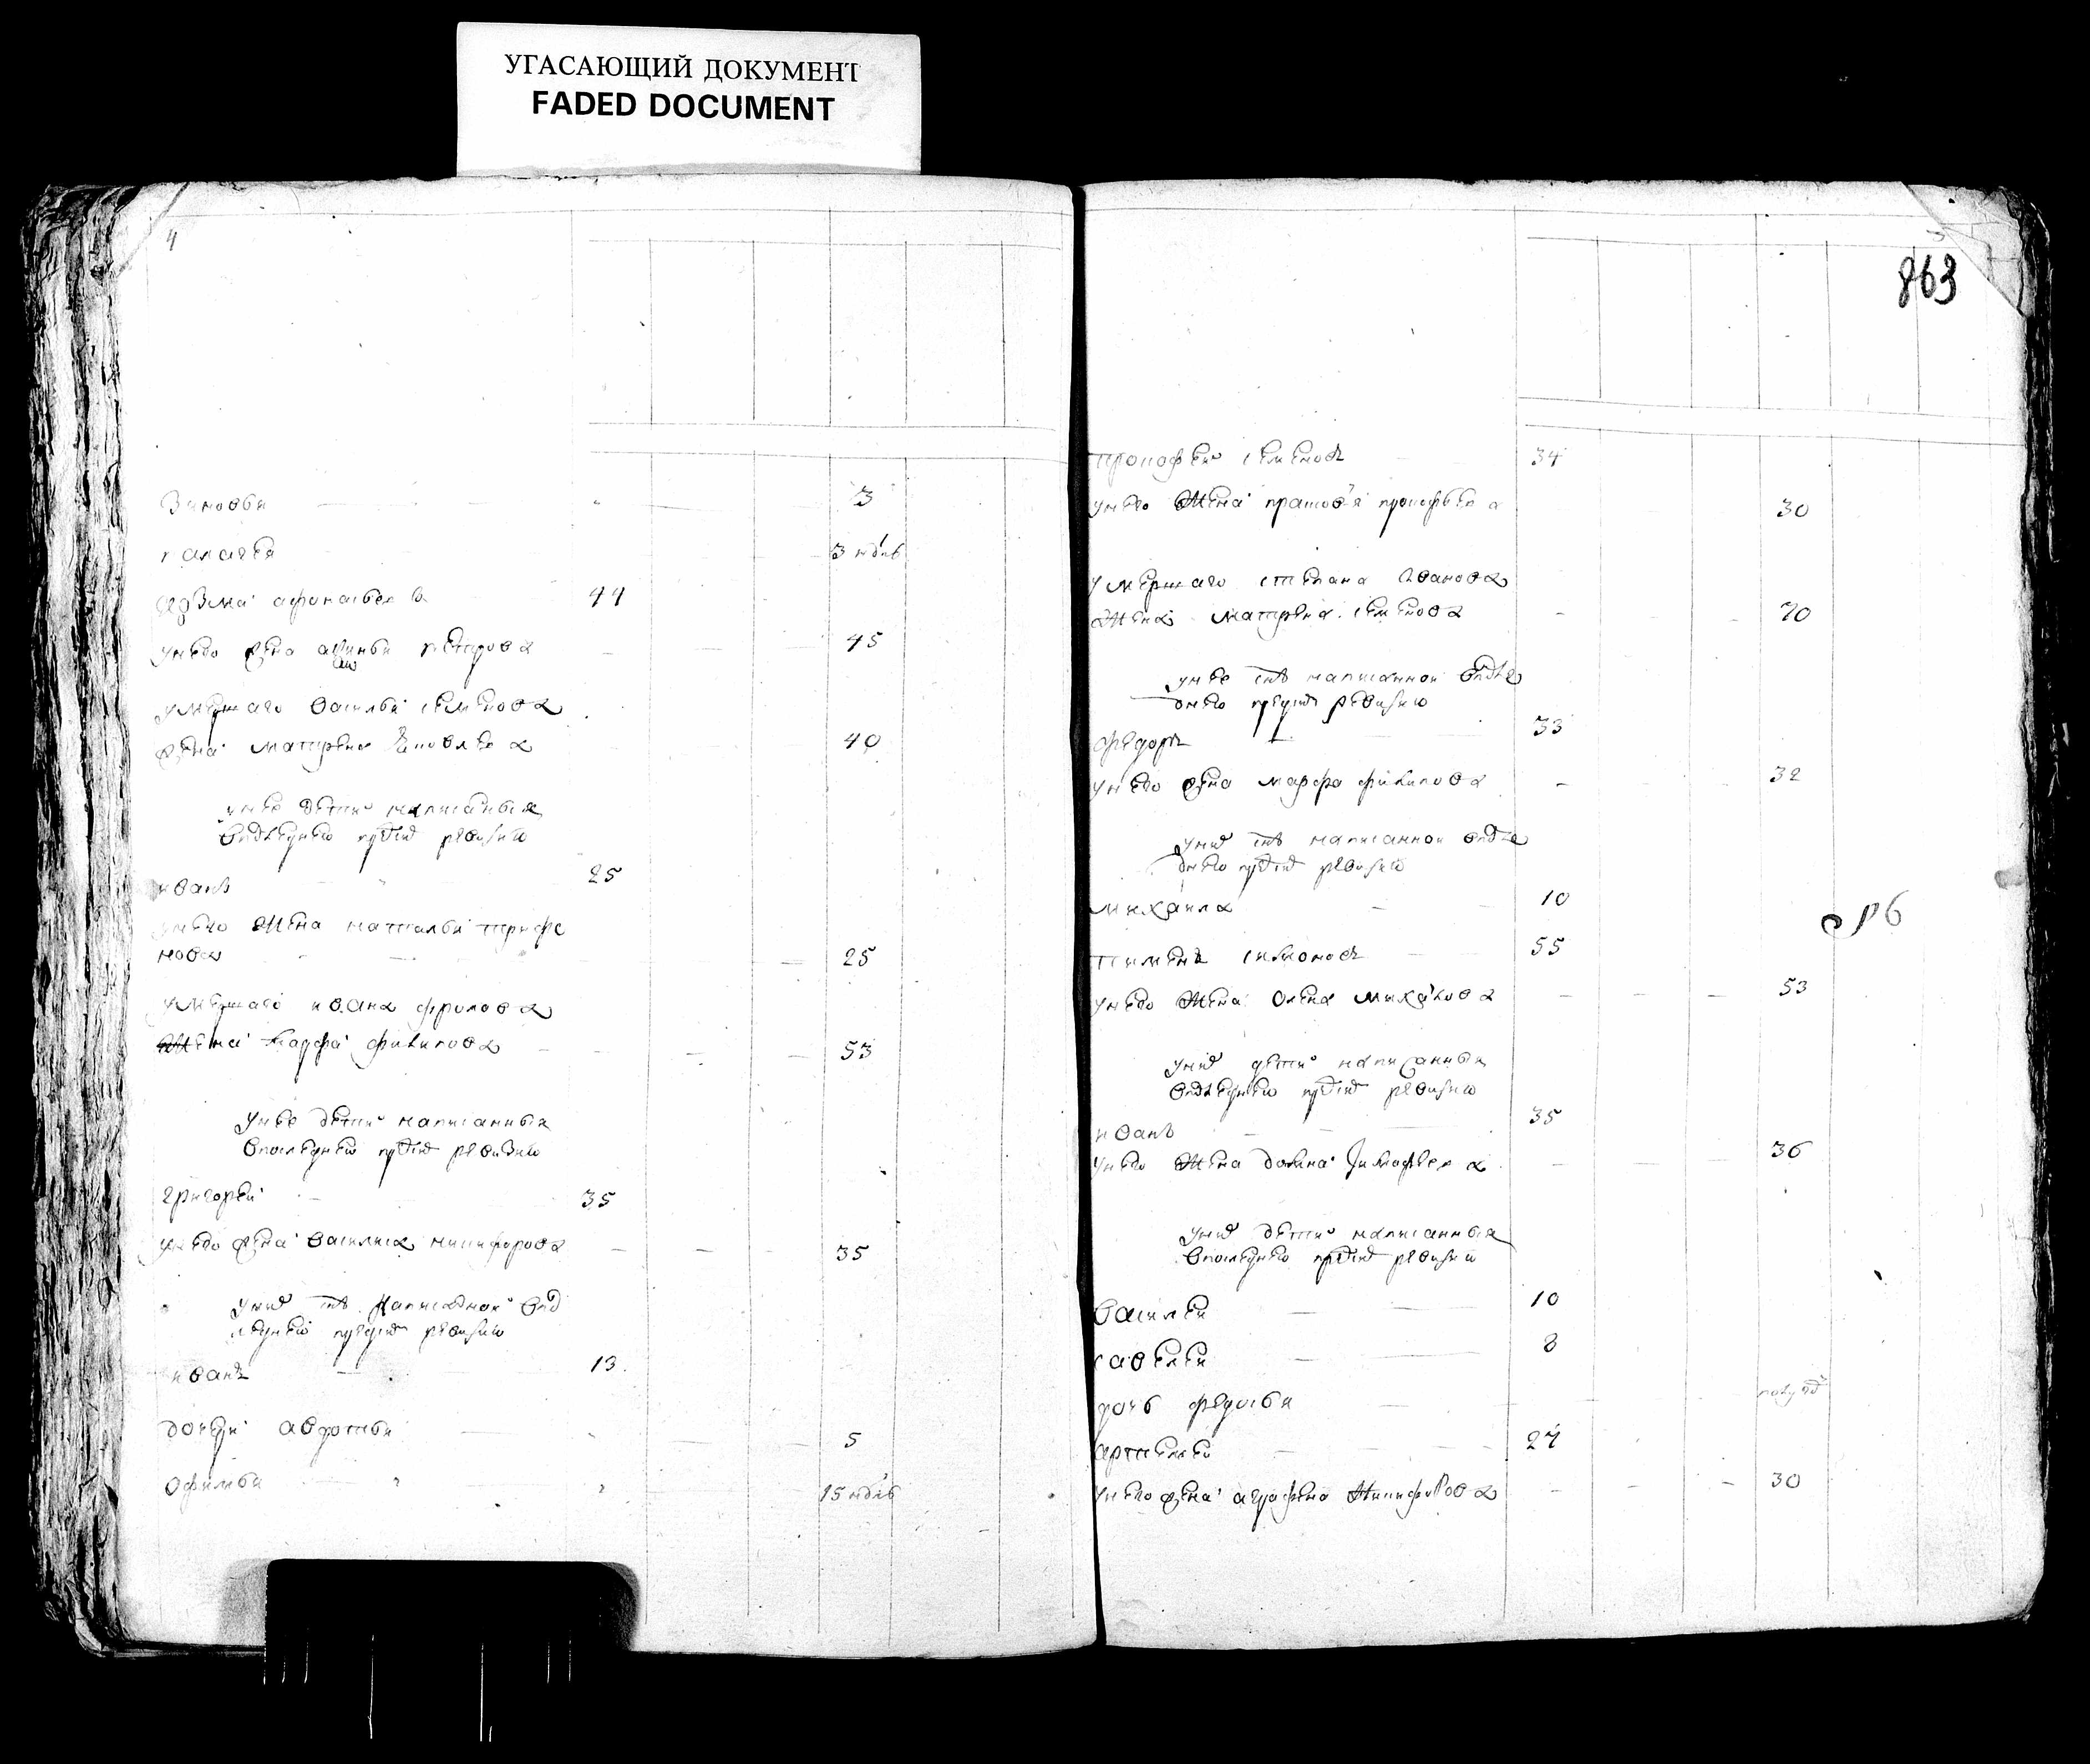 УГАСАЮЩИЙ ДОКУМЕНТ
FADED DOCUMENT
4
Зиновья 3
палагея 3 идѣль
Козма афонасьев 44
унево жена аксинья петрова 45
умершаго василья семенова
жена матрена Яковлева 40
унее дети написанныя
впоследнею пред сею ревизию
иванъ 25
унево жена наталья трифо
нова 25
умершаго ивана фролова
жена марфа филипова 53
унее дети написанныя
впоследнею пред сею ревизию
григореи 35
унево жена василиса никифорова 35
уних сынъ написанной впо
следнею пред сею ревизию
иванъ 13
дочери авдотья 5
офимья 15 идѣль
863
прокофеи семеновъ 34
унево жена прасковья прокофьева 30
умершаго степана иванова
жена матрена семенова 70
унее сынъ написанной впосле
днею пред сею ревизию
федоръ 33
унево жена марфа филипова 32
уних сынъ написанной впосле
днею пред сею ревизию
михаила 10
пименъ симоновъ 55
унево жена олена михайлова 53
уних дети написанныя
впоследнею пред сею ревизию
иванъ 35
унево жена домна тимофеева 36
уних дети написанныя
впоследнею пред сею ревизию
василеи 10
савелеи 8
дочь федосья
артемеи 27
унево жена аграфена никифорова 30